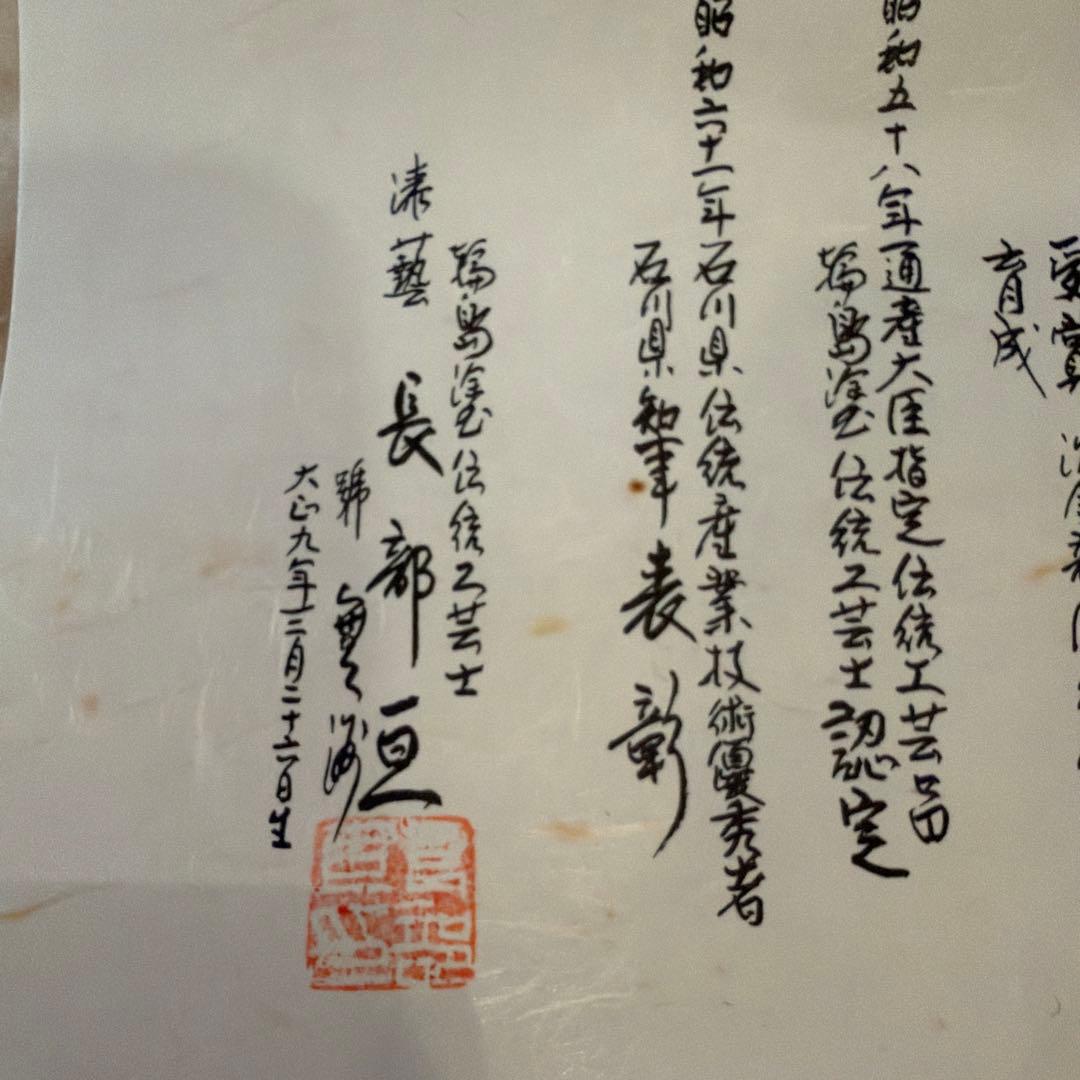 受賞
育成
昭和五十八年通産大臣指定伝統工芸品
輪島塗伝統工芸士認定
昭和六十一年石川県伝統産業技術優秀者
石川県知事表彰
輪島塗伝統工芸士
漆藝 長部亘
號
大正九年十二月二十六日生